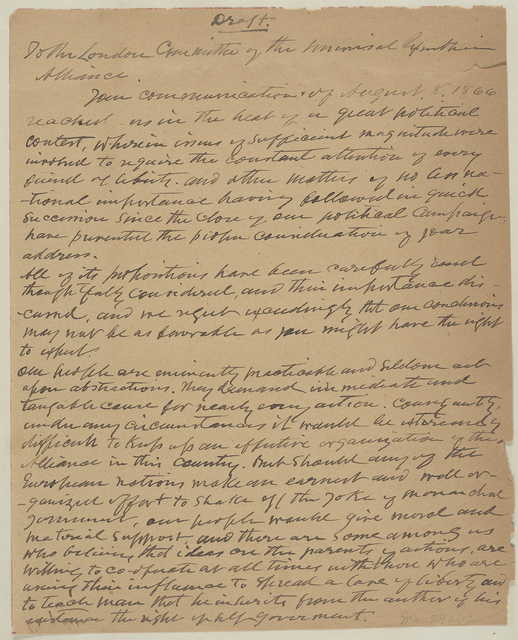 Draft
To the London Committee of the Universal Republican
Alliance.
Your communication of August 8, 1866
reached us in the heat of a great political
contest, wherein issues of sufficient magnitude were
involved to require the constant attention of every
friend of liberty. and other matters of no less na-
-tional importance having followed in quick
succession since the close of our political Campaign,
have prevented the proper consideration of your
address.
All of its propositions have been carefully and
thoughtfully considered, and their importance dis-
cussed, and we regret exceedingly that our conclusions
may not be as favorable as you might have the right
to expect.
Our people are eminently practicable and seldom act
upon abstractions. They demand immediate and
tangable cause for nearly every action. Consequently,
under any circumstances it would be extremely
difficult to keep up an effective organization of the
Alliance in this country. But should any of the
European nations make an earnest and well or-
-ganized effort to shake off the yoke of monarchal
government, our people would give moral and
material support, and there are some among us
who believing that ideas are the parents of actions, are
willing to co-operate at all times with those who are
using their influence to spread a love of liberty and
to teach man that he inherits from the author of his
existence the right of self-Goverment.